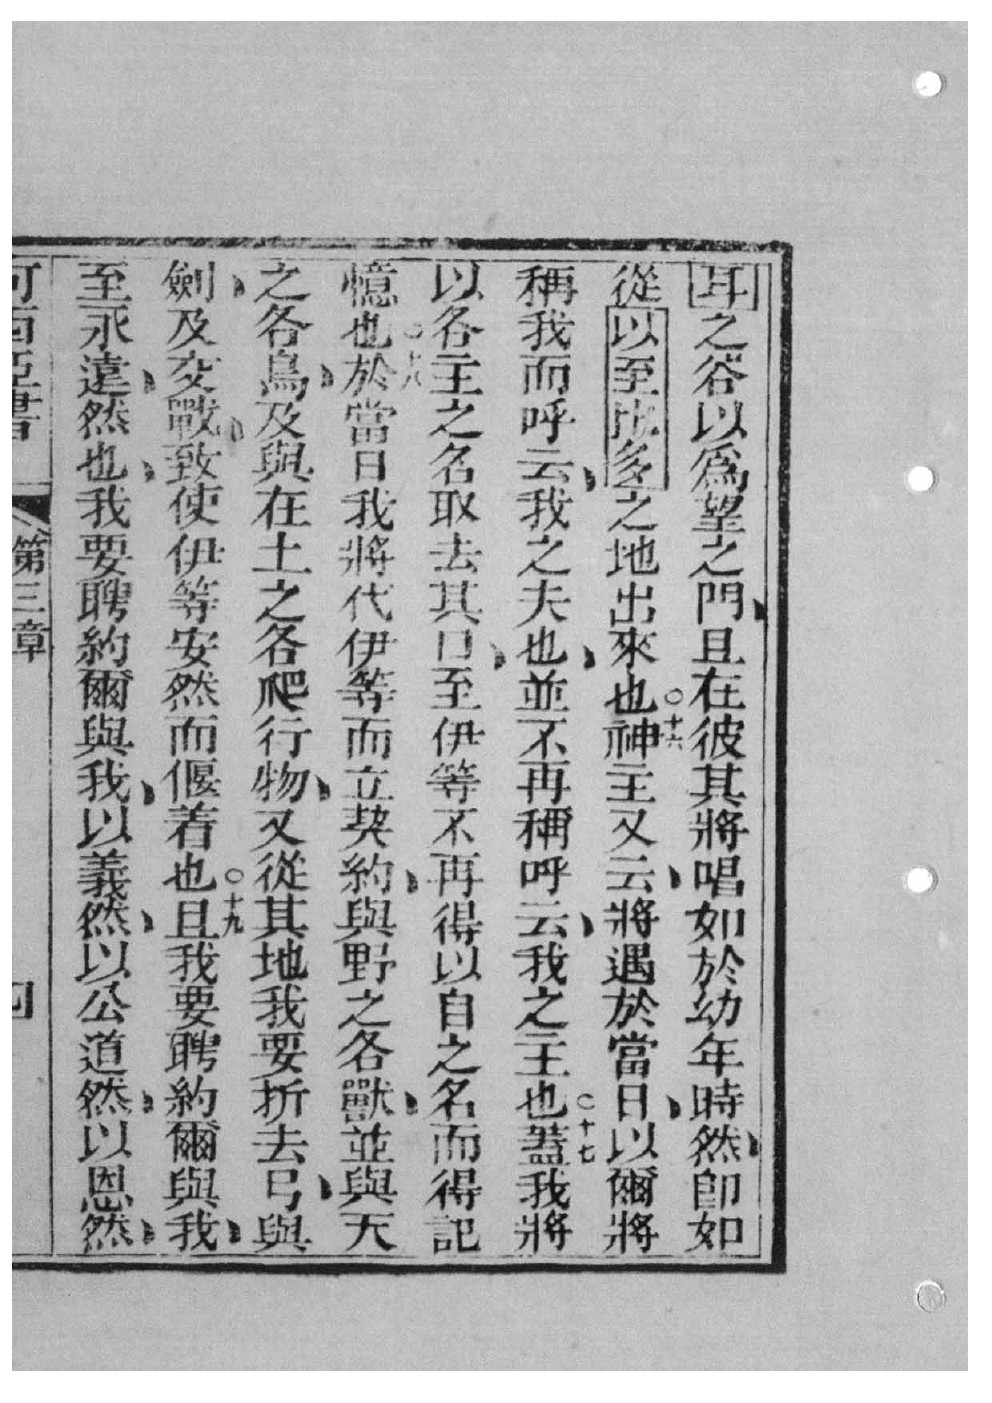 耳之谷以爲望之門且在彼其將唱如於幼年時然卽如
從以至比多之地出來也○十六神主又云將遇於當日以爾將
稱我而呼云我之夫也並不再稱呼云我之主也○十七蓋我將
以各主之名取去其口至伊等不再得以自之名而得記
憶也○十八於當日我將代伊等而立契約與野之各獸並與天
之各鳥及與在土之各爬行物又從其地我要折去弓與
劍及交戰致使伊等安然而偃着也○十九且我要聘約爾與我
至永遠然也我要聘約爾與我以義然以公道然以恩然
何西亞書 第三章 四